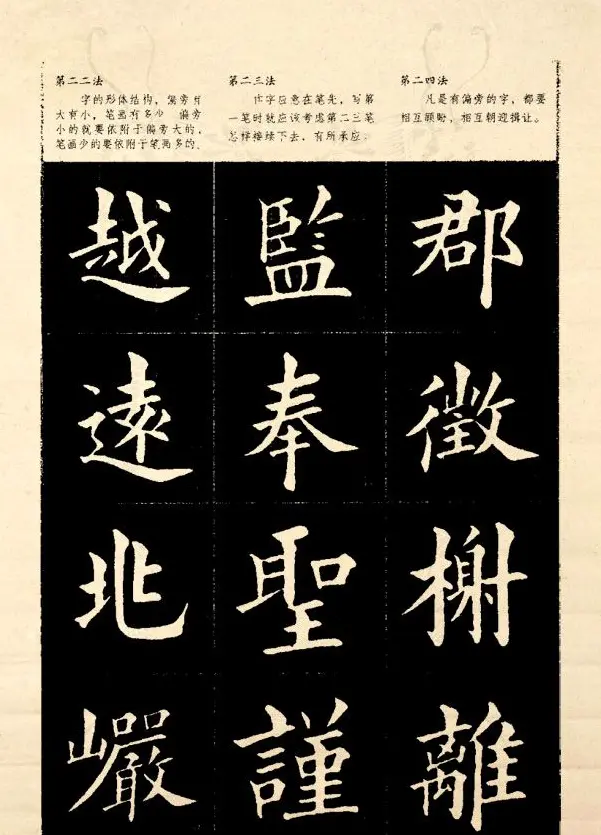 第二二法
字的形体结构，偏旁有
大有小，笔画有多少 偏旁
小的就要依附于偏旁大的，
笔画少的要依附于笔画多的、
第二三法
作字应意在笔先，写第
一笔时就应该考虑第二三笔
怎样接续下去，有所承应．
第二四法
凡是有偏旁的字，都要
相互顾盼，相互朝迎揖让。
越 監 郡
遠 奉 徵
兆 聖 榭
巗 謹 離